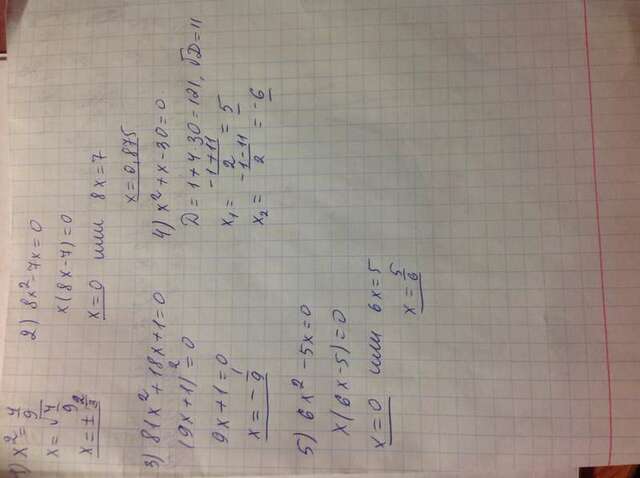 1) x² = 4/9
x = √4/9
x = ± 2/3
2) 8x² - 7x = 0
x(8x - 7) = 0
x = 0 или 8x = 7
x = 0,875
3) 81x² + 18x + 1 = 0
(9x + 1)² = 0
9x + 1 = 0
x = - 1/9
4) x² + x - 30 = 0
D = 1 + 4·30 = 121, √D = 11
x₁ = (-1 + 11)/2 = 5
x₂ = (-1 - 11)/2 = -6
5) 6x² - 5x = 0
x(6x - 5) = 0
x = 0 или 6x = 5
x = 5/6